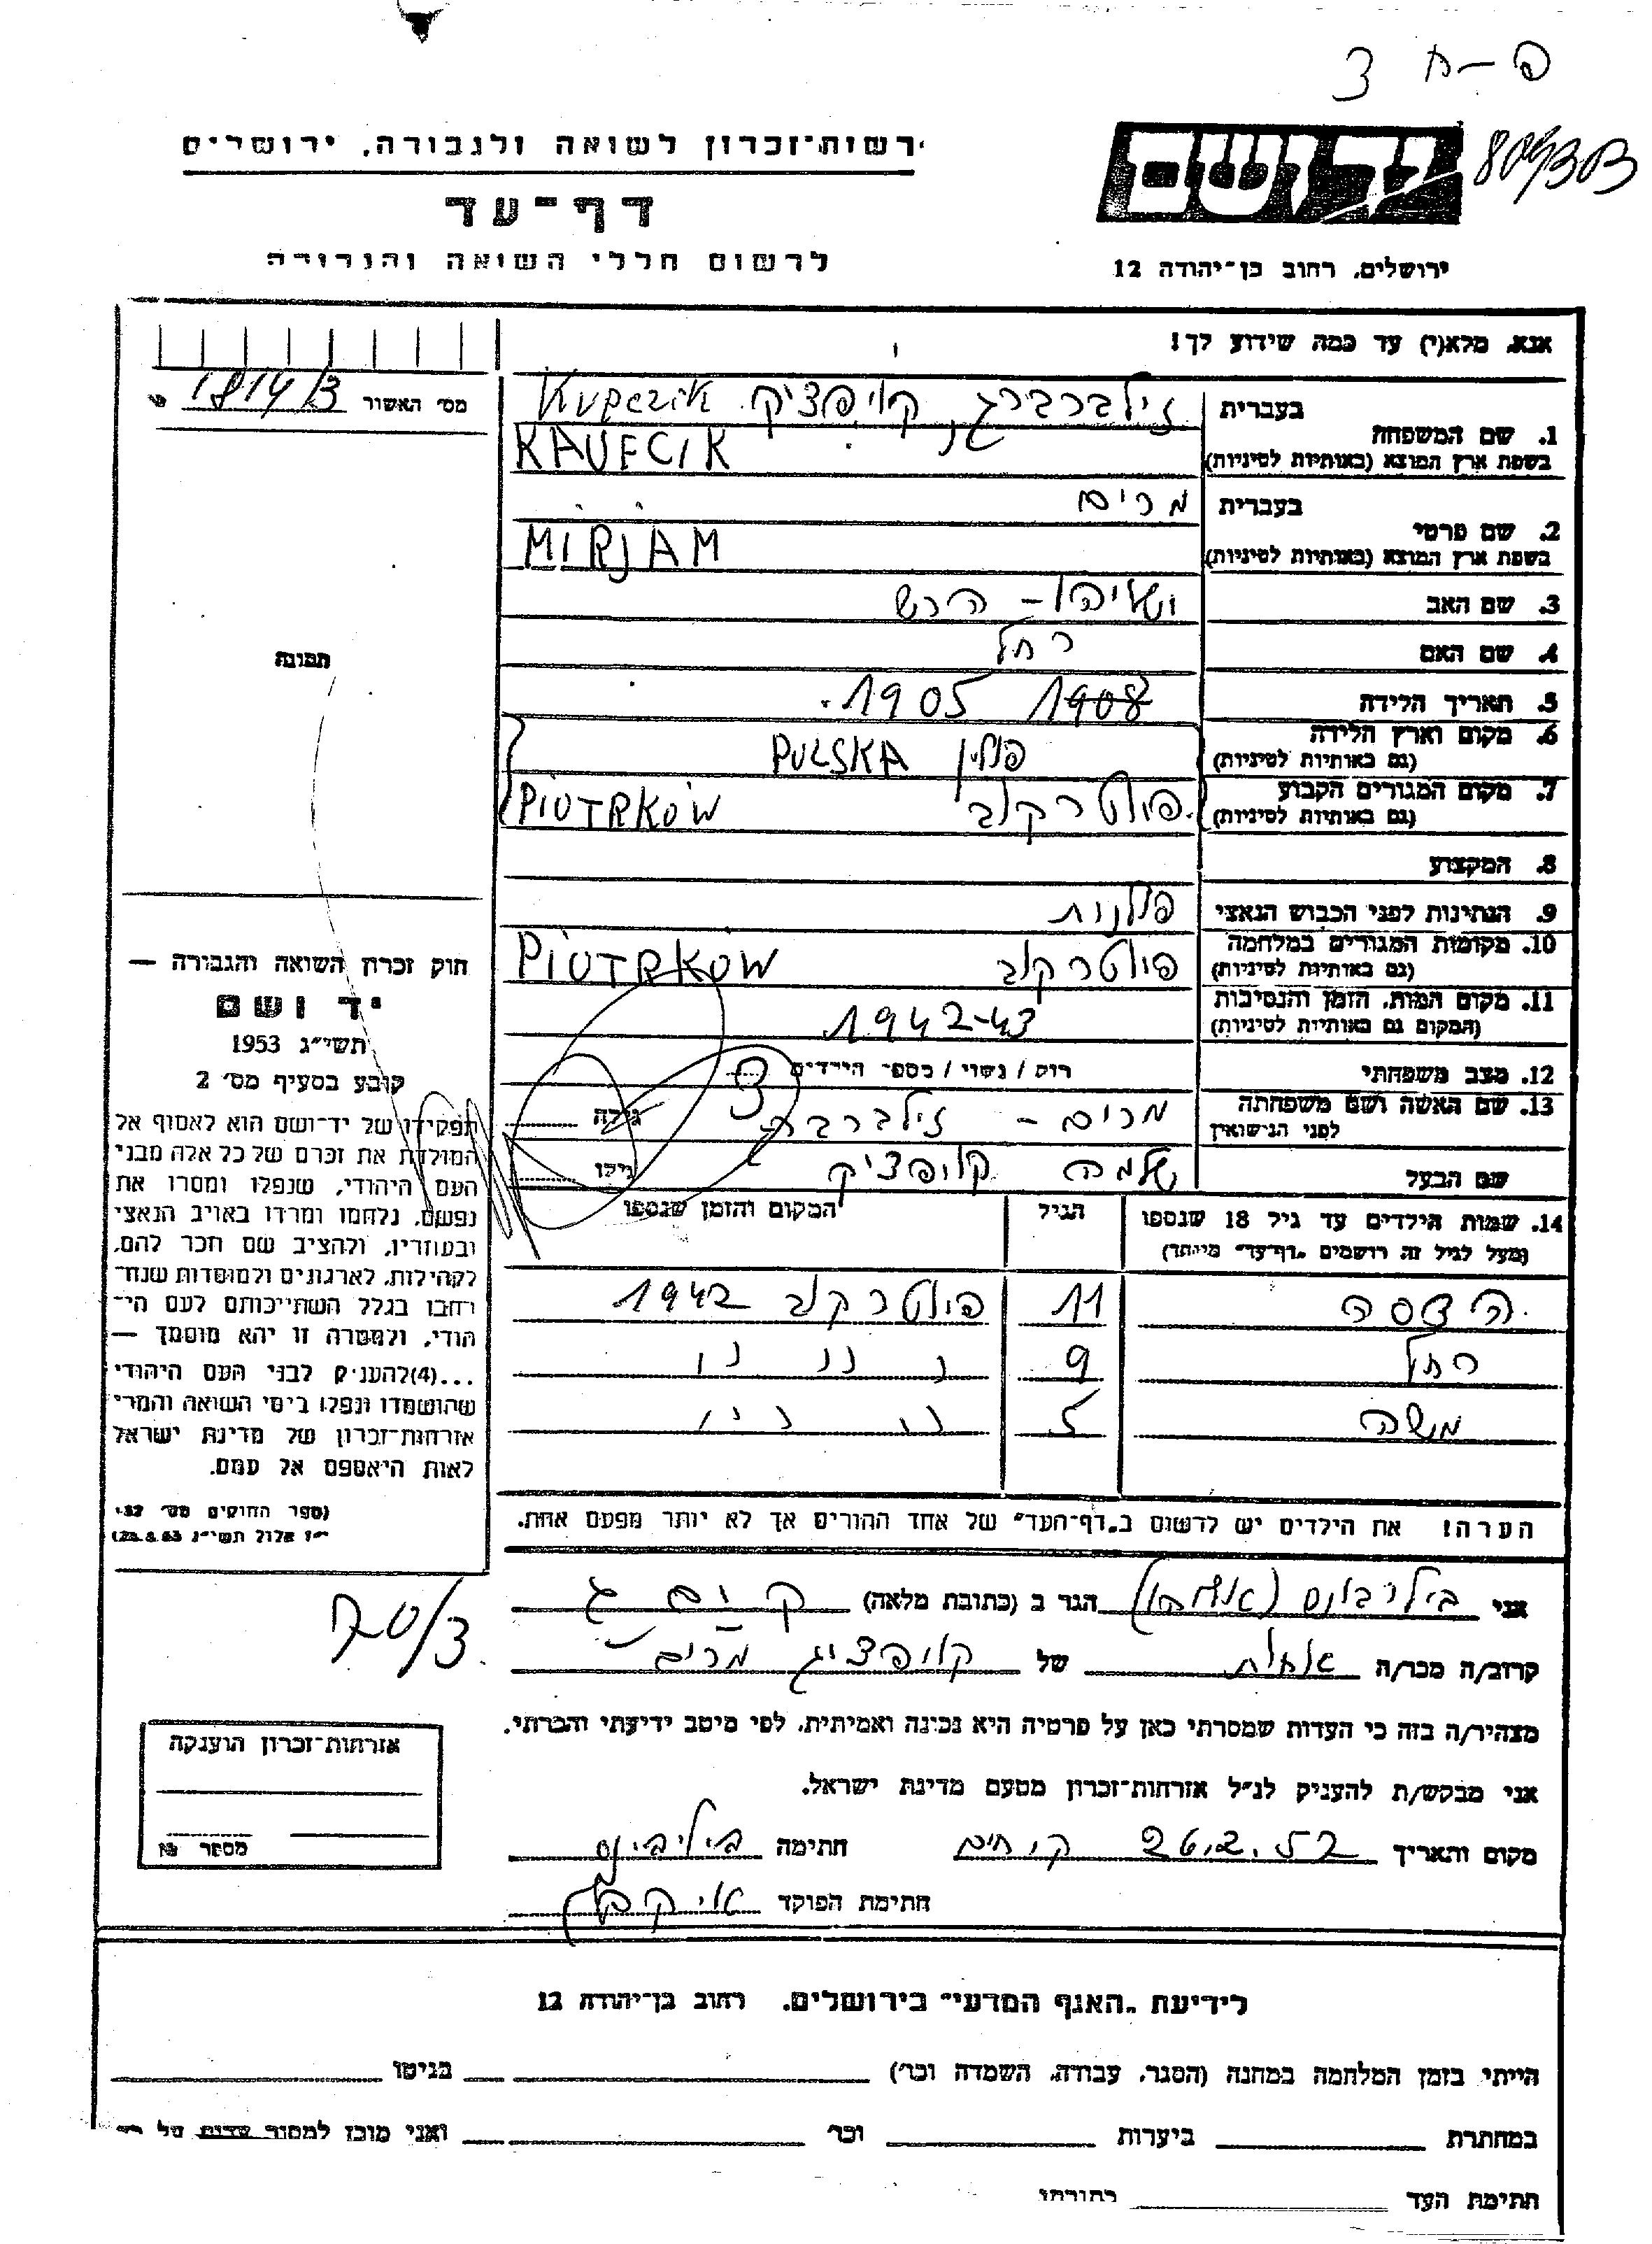 פ-ח 3
רשות-זכרון לשואה ולגבורה, ירושלים
יד ושם
דף-עד
לרשום חללי השואה והגבורה
ירושלים, רחוב בן-יהודה 12
אנא, מלא(י) עד כמה שידוע לך!
מס׳ האשור 1814/3
1. שם המשפחה
בעברית זילברברג, קויפציק Kupczik
בשפת ארץ המוצא (באותיות לטיניות) KAUFCIK
2. שם פרטי
בעברית מרים
בשפת ארץ המוצא (באותיות לטיניות) MIRJAM
3. שם האב ושעיהו - הרש
4. שם האם רחל
5. תאריך הלידה 1908 1905
6. מקום וארץ הלידה פולין PULSKA
(גם באותיות לטיניות)
7. מקום המגורים הקבוע פיוטרקוב PIOTRKOW
(גם באותיות לטיניות)
8. המקצוע
9. הנתינות לפני הכבוש הנאצי פולנית
10. מקומות המגורים במלחמה פיוטרקוב PIOTRKOW
(גם באותיות לטיניות)
11. מקום המות, הזמן והנסיבות 1942-43
(המקום גם באותיות לטיניות)
12. מצב משפחתי רווק / נשוי / מספר הילדים 3
13. שם האשה ושם משפחתה מרים - זילברברג גילה
לפני הנישואין
שם הבעל שלמה קויפציק גילו
14. שמות הילדים עד גיל 18 שנספו הגיל המקום והזמן שנספו
(מעל לגיל זה רושמים "דף-עד" מיוחד)
הדסה 11 פיוטרקוב 1942
רחל 9 " " "
משה 5 " " "
הערה! את הילדים יש לרשום ב"דף-העד" של אחד ההורים אך לא יותר מפעם אחת.
תמונה
חוק זכרון השואה והגבורה —
יד ושם
תשי"ג 1953
קובע בסעיף מס׳ 2
תפקידו של יד-ושם הוא לאסוף אל
המולדת את זכרם של כל אלה מבני
העם היהודי, שנפלו ומסרו את
נפשם, נלחמו ומרדו באויב הנאצי
ובעוזריו, ולהציב שם וזכר להם,
לקהילות, לארגונים ולמוסדות שנח-
רבו בגלל השתייכותם לעם הי-
הודי, ולמטרה זו יהא מוסמך —
...(4) להעניק לבני העם היהודי
שהושמדו ונפלו בימי השואה והמרי
אזרחות-זכרון של מדינת ישראל
לאות היאספם אל עמם.
(ספר החוקים מס׳ 132,
י"ז אלול תשי"ג 28.8.53)
אני הגר ב (כתובת מלאה)
קרוב/ה מכר/ה אחות של קויפציג מרים
מצהיר/ה בזה כי העדות שמסרתי כאן על פרטיה היא נכונה ואמיתית, לפי מיטב ידיעתי והכרתי.
אני מבקש/ת להעניק לנ"ל אזרחות-זכרון מטעם מדינת ישראל.
מקום והאריך 26.2.52 חתימה
חתימת הפוקד
70/3
אזרחות-זכרון הוענקה
מספר
לידיעת "האגף המדעי" בירושלים, רחוב בן-יהודה 12
הייתי בזמן המלחמה במחנה (הסגר, עבודה, השמדה וכו׳) בגיטו
במחתרת ביערות וכו׳ ואני מוכן למסור עדות על כך
חתימת העד כתובתו